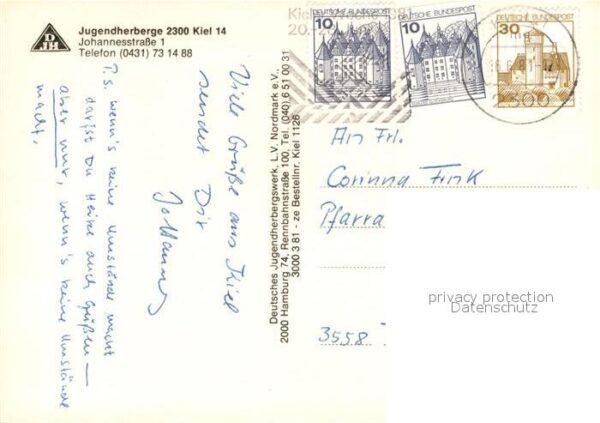 DJH
Jugendherberge 2300 Kiel 14
Johannesstraße 1
Telefon (0431) 73 14 88
Viele Grüße aus Kiel
sendet Dir
Johannes
P.S. wenn's keine Umstände macht
darfst Du Heike auch Grüßen —
aber nur, wenn's keine Umstände
macht.
Deutsches Jugendherbergswerk, L.V. Nordmark e.V.,
2000 Hamburg 74, Rennbahnstraße 100, Tel. (040) 6 51 00 31
3000 3 81 - ze Bestellnr. Kiel 1126
10
DEUTSCHE BUNDESPOST
10
DEUTSCHE BUNDESPOST
30
DEUTSCHE BUNDESPOST
An Frl.
Corinna Fink
Pfarra
privacy protection
Datenschutz
3558